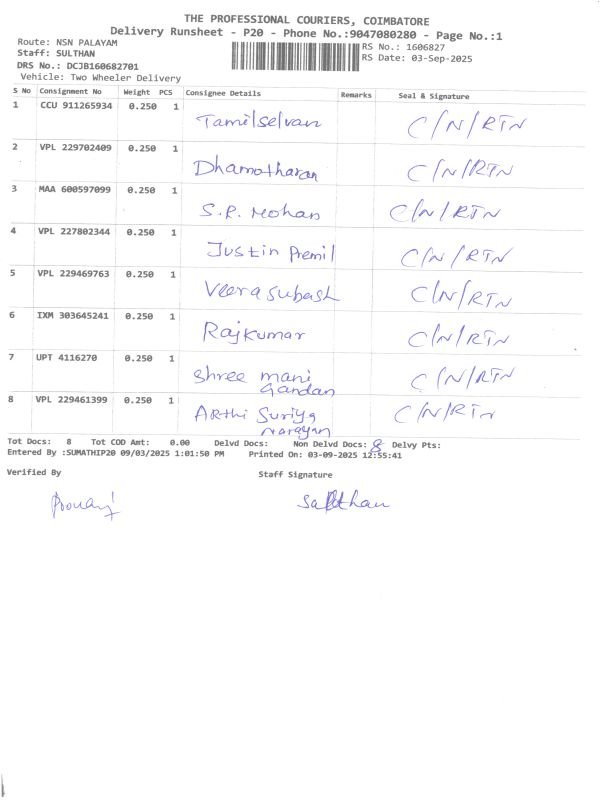 THE PROFESSIONAL COURIERS, COIMBATORE
Delivery Runsheet - P20 - Phone No.:9047080280 - Page No.:1
Route: NSN PALAYAM RS No.: 1606827
Staff: SULTHAN RS Date: 03-Sep-2025
DRS No.: DCJB160682701
Vehicle: Two Wheeler Delivery
S No Consignment No Weight PCS Consignee Details Remarks Seal & Signature
1 CCU 911265934 0.250 1 Tamilselvan C/N/RTN
2 VPL 229702409 0.250 1 Dhamotharan C/N/RTN
3 MAA 600597099 0.250 1 S.R. Mohan C/N/RTN
4 VPL 227802344 0.250 1 Justin Premil C/N/RTN
5 VPL 229469763 0.250 1 Veera subash C/N/RTN
6 IXM 303645241 0.250 1 Rajkumar C/N/RTN
7 UPT 4116270 0.250 1 Shree mani C/N/RTN
Gandan
8 VPL 229461399 0.250 1 ARthi Suriya C/N/RTN
Narayan
Tot Docs: 8 Tot COD Amt: 0.00 Delvd Docs: Non Delvd Docs: 8 Delvy Pts:
Entered By :SUMATHIP20 09/03/2025 1:01:50 PM Printed On: 03-09-2025 12:55:41
Verified By Staff Signature
Sulthan